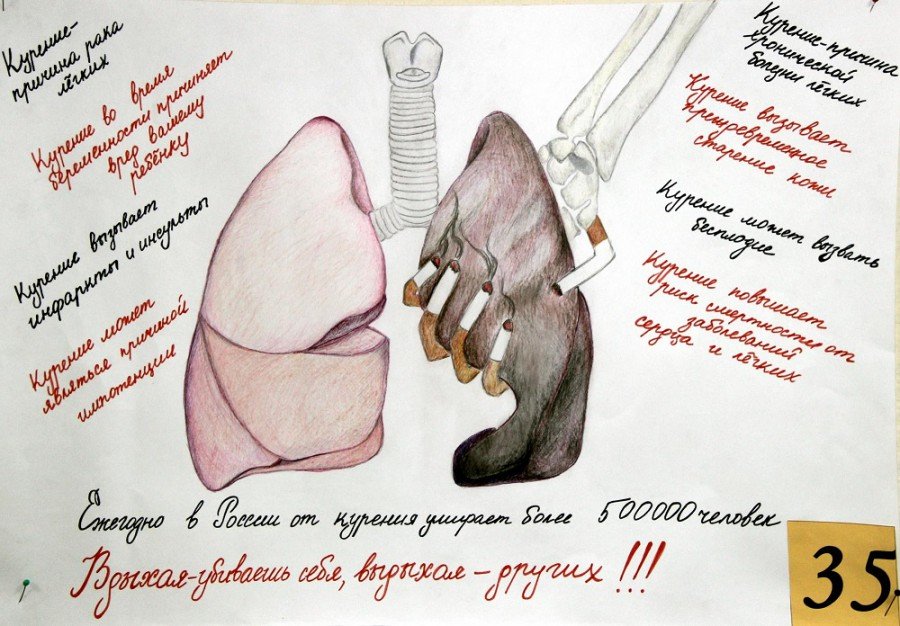 Курение-
причина рака
лёгких
Курение во время
беременности причиняет
вред вашему
ребёнку
Курение вызывает
инфаркты и инсульты
Курение может
являться причиной
импотенции
Курение-причина
хронической
болезни лёгких
Курение вызывает
преждевременное
старение кожи
Курение может вызвать
бесплодие
Курение повышает
риск смертности от
заболеваний
сердца и лёгких
Ежегодно в России от курения умирает более 500000 человек
Вдыхая-убиваешь себя, выдыхая – других!!!
35